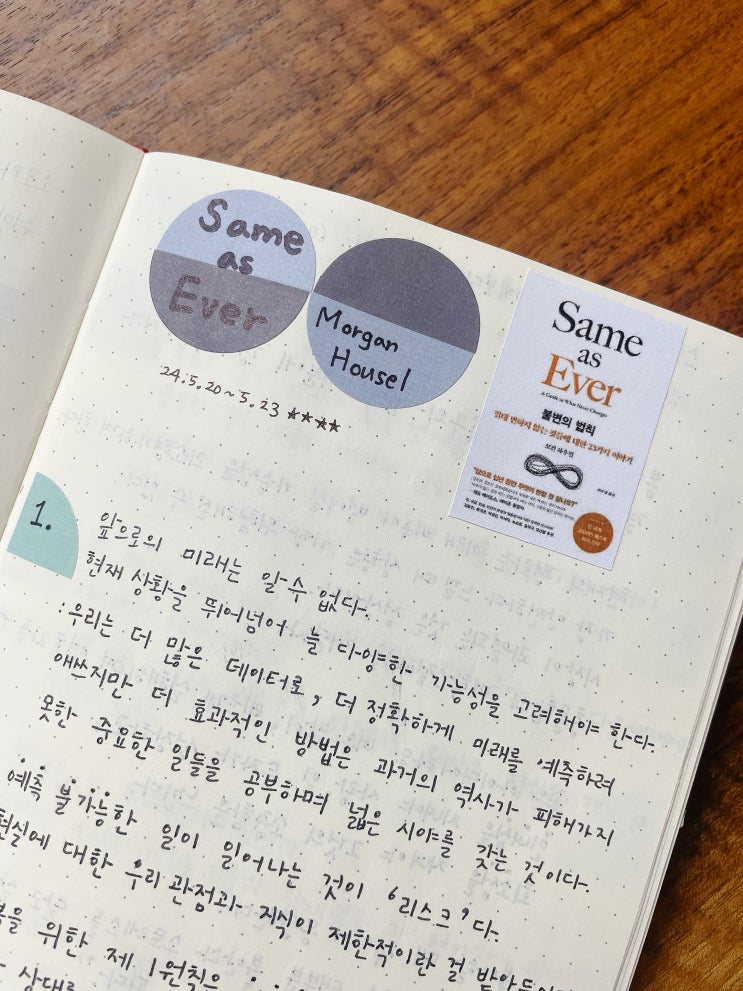 Same
as
Ever
Morgan
Housel
24.5.20~5.23 ★★★★
Same
as
Ever
A Guide to What Never Changes
불변의 법칙
절대 변하지 않는 것들에 대한 23가지 이야기
모건 하우절
1.
앞으로의 미래는 알 수 없다.
현재 상황을 뛰어넘어 늘 다양한 가능성을 고려해야 한다.
: 우리는 더 많은 데이터로, 더 정확하게 미래를 예측하려
애쓰지만 더 효과적인 방법은 과거의 역사가 피해가지
못한 중요한 일들을 공부하며 넓은 시야를 갖는 것이다.
예측 불가능한 일이 일어나는 것이 '리스크'다.
현실에 대한 우리 관점과 지식이 제한적이란 걸
위한 제 1원칙은
상대를